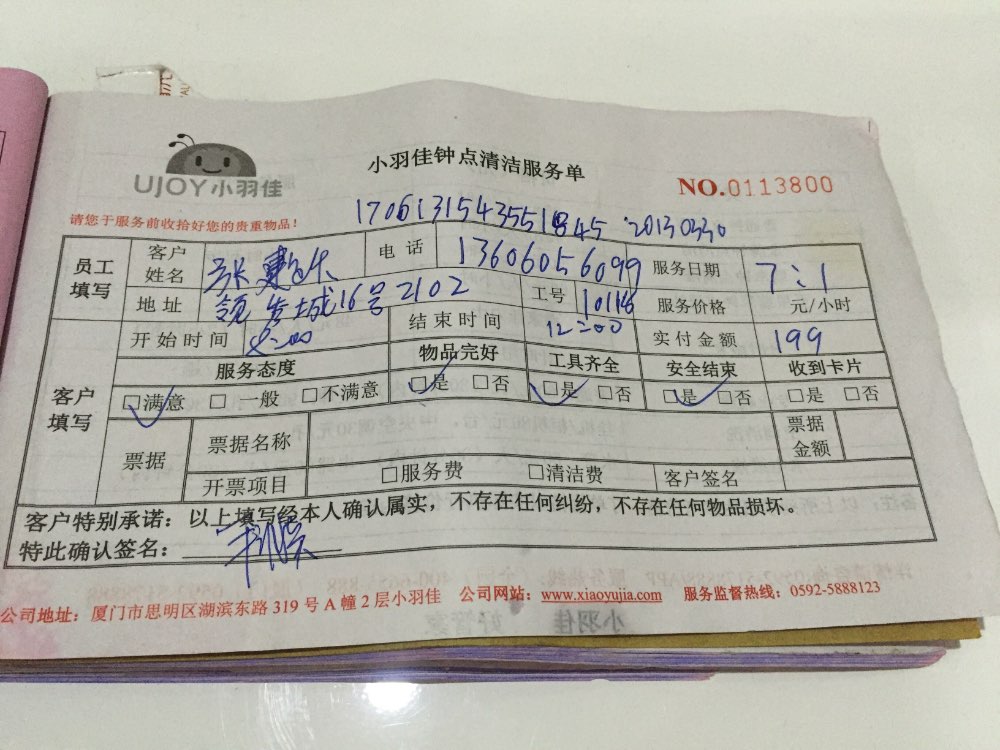 UJOY小羽佳
小羽佳钟点清洁服务单
NO.0113800
请您于服务前收拾好您的贵重物品!
20130330
员工填写 客户姓名 张 电话 13606056099 服务日期 7:1
地址 领 城16号2102 工号 服务价格 元/小时
客户填写 开始时间 8:00 结束时间 12:00 实付金额 199
服务态度 物品完好 工具齐全 安全结束 收到卡片
□满意 □一般 □不满意 □是 □否 □是 □否 □是 □否 □是 □否
票据 票据名称 票据金额
开票项目 □服务费 □清洁费 客户签名
客户特别承诺:以上填写经本人确认属实,不存在任何纠纷,不存在任何物品损坏。
特此确认签名:
公司地址:厦门市思明区湖滨东路 319 号 A 幢 2 层小羽佳 公司网站:www.xiaoyujia.com 服务监督热线:0592-5888123